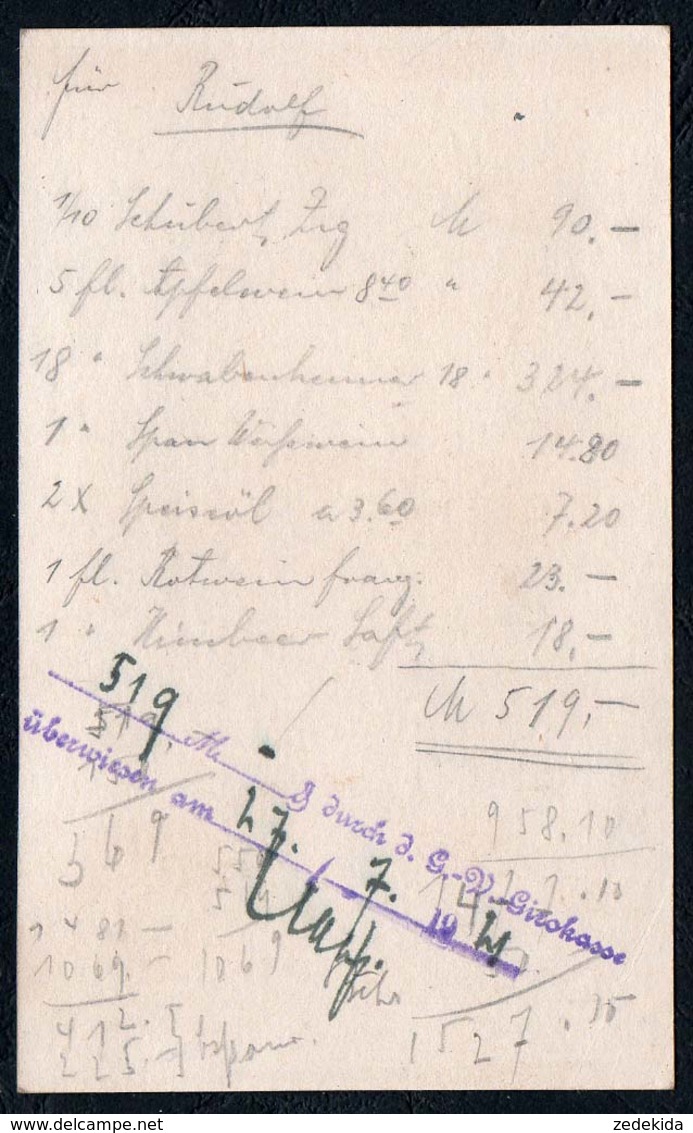 für Rudolf
1/10 Schubert Zig M 90.—
5 fl. Apfelwein 8 40 " 42,—
18 " Schwabenheimer 18 " 324.—
1 " Span Weißwein 14.80
2 x Speiseöl a 3.60 7.20
1 fl. Rotwein franz. 23.—
1 " Himbeer Saft 18,—
M 519,—
519 M. — ₰ durch d. G.-V.-Girokasse
überwiesen am 27. 7. 19 21
958.10
569
1481 —
1069 — 1069
1527.10
zedekida